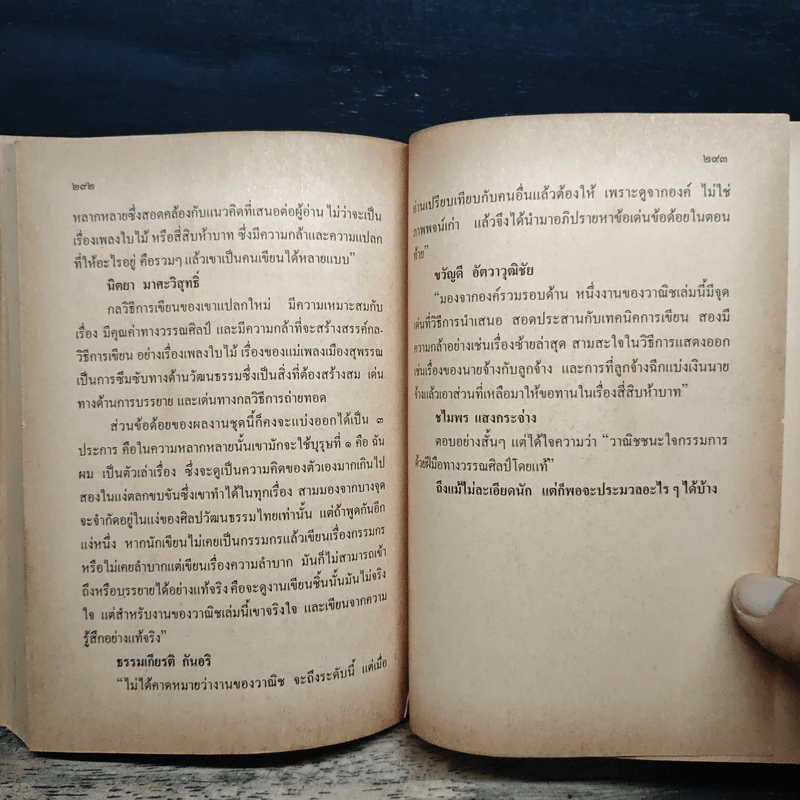 ๒๙๒
หลากหลายซึ่งสอดคล้องกับแนวคิดที่เสนอต่อผู้อ่าน ไม่ว่าจะเป็น
เรื่องเพลงใบไม้ หรือสี่สิบห้าบาท ซึ่งมีความกล้าและความแปลก
ที่ให้อะไรอยู่ คือรวมๆ แล้วเขาเป็นคนเขียนได้หลายแบบ”
นิตยา มาศะวิสุทธิ์
กลวิธีการเขียนของเขาแปลกใหม่ มีความเหมาะสมกับ
เรื่อง มีคุณค่าทางวรรณศิลป์ และมีความกล้าที่จะสร้างสรรค์กล-
วิธีการเขียน อย่างเรื่องเพลงใบไม้ เรื่องของแม่เพลงเมืองสุพรรณ
เป็นการซึมซับทางด้านวัฒนธรรมซึ่งเป็นสิ่งที่ต้องสร้างสม เด่น
ทางด้านการบรรยาย และเด่นทางกลวิธีการถ่ายทอด
ส่วนข้อด้อยของผลงานชุดนี้ก็คงจะแบ่งออกได้เป็น ๓
ประการ คือในความหลากหลายนั้นเขามักจะใช้บุรุษที่ ๑ คือ ฉัน
ผม เป็นตัวเล่าเรื่อง ซึ่งจะดูเป็นความคิดของตัวเองมากเกินไป
สองในแง่ตลกขบขันซึ่งเขาทำได้ในทุกเรื่อง สามมองจากบางจุด
จะจำกัดอยู่ในแง่ของศิลปวัฒนธรรมไทยเท่านั้น แต่ถ้าพูดกันอีก
แง่หนึ่ง หากนักเขียนไม่เคยเป็นกรรมกรแล้วเขียนเรื่องกรรมกร
หรือไม่เคยลำบากแต่เขียนเรื่องความลำบาก มันก็ไม่สามารถเข้า
ถึงหรือบรรยายได้อย่างแท้จริง คือจะดูงานเขียนชิ้นนั้นมันไม่จริง
ใจ แต่สำหรับงานของวาณิชเล่มนี้เขาจริงใจ และเขียนจากความ
รู้สึกอย่างแท้จริง”
ธรรมเกียรติ กันอริ
“ไม่ได้คาดหมายว่างานของวาณิช จะถึงระดับนี้ แต่เมื่อ
๒๙๓
อ่านเปรียบเทียบกับคนอื่นแล้วต้องให้ เพราะดูจากองค์ ไม่ใช่
ภาพพจน์เก่า แล้วจึงได้นำมาอภิปรายหาข้อเด่นข้อด้อยในตอน
ท้าย”
ขวัญดี อัตวาวุฒิชัย
“มองจากองค์รวมรอบด้าน หนึ่งงานของวาณิชเล่มนี้มีจุด
เด่นที่วิธีการนำเสนอ สอดประสานกับเทคนิคการเขียน สองมี
ความกล้าอย่างเช่นเรื่องซ้ายล่าสุด สามสะใจในวิธีการแสดงออก
เช่นเรื่องของนายจ้างกับลูกจ้าง และการที่ลูกจ้างฉีกแบ่งเงินนาย
จ้างแล้วเอาส่วนที่เหลือมาให้ขอทานในเรื่องสี่สิบห้าบาท”
ชไมพร แสงกระจ่าง
ตอบอย่างสั้นๆ แต่ได้ใจความว่า “วาณิชชนะใจกรรมการ
ด้วยฝีมือทางวรรณศิลป์โดยแท้”
ถึงแม้ไม่ละเอียดนัก แต่ก็พอจะประมวลอะไร ๆ ได้บ้าง